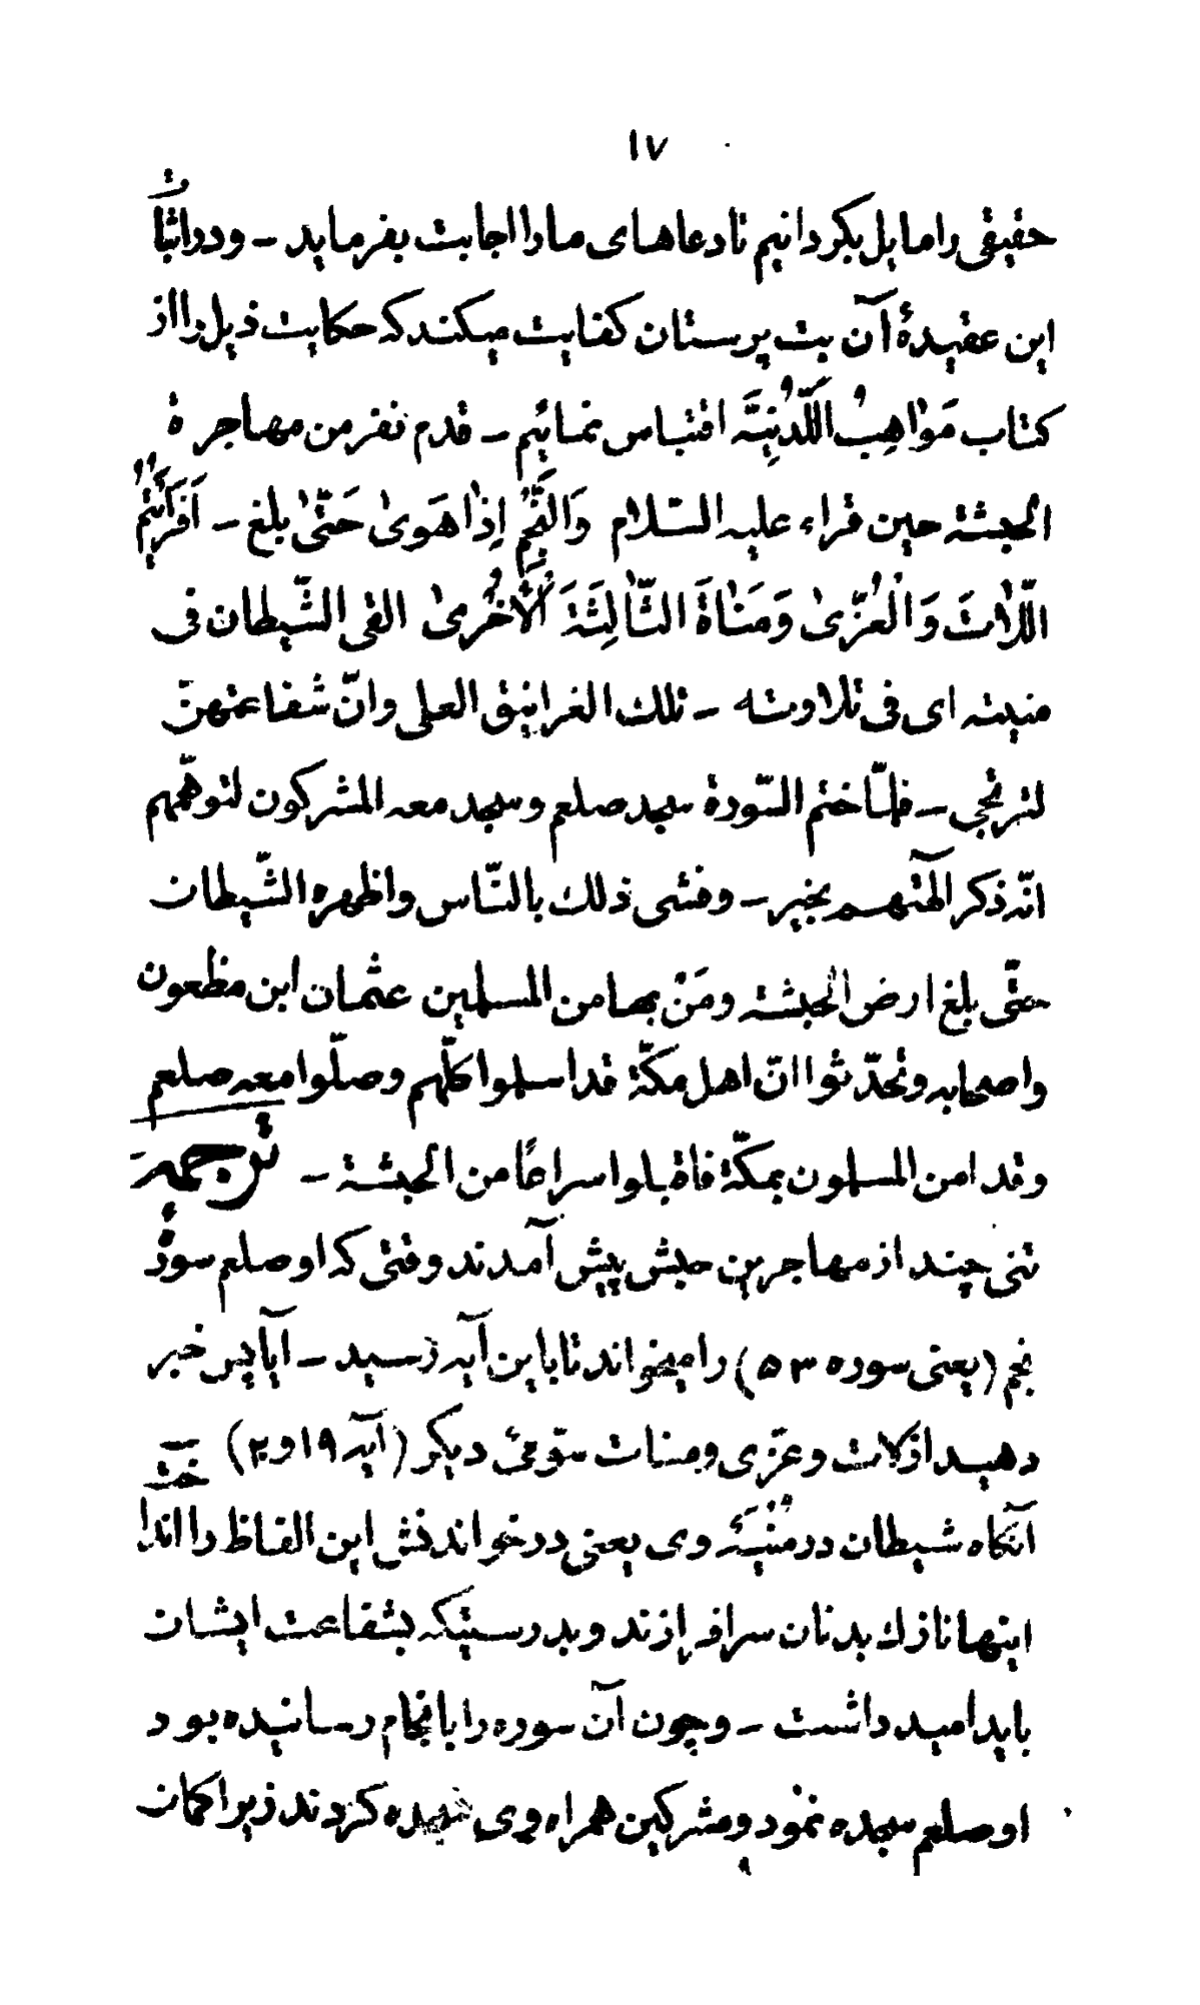 ١٧
حقیقی را مایل بکردانیم تا دعاهای ما را اجابت بفرماید - و در اثبات
این عقیدهٔ آن بت پرستان کفایت میکند که حکایت ذیل را از
کتاب مَوٰاهِبُ اللَّدُنِیَّه اقتباس نمائیم - قدم نفر من مهاجرة
الحبشة حین قراء علیه السّلام وَالنَّجْمِ إِذٰا هَویٰ حَتّیٰ بلغ - اَفَرَاَیْتُمُ
اللّٰاتَ وَالْعُزّیٰ وَمَنٰاةَ الثّٰالِثَةَ الْاُخْریٰ القی الشّیطان فی
منیته ای فی تلاوته - تلك الغرانیق العلی وانّ شفاعتهنّ
لترتجی - فلمّا ختم السّورة سجد صلعم و سجد معه المشرکون لتوهّمهم
انّه ذکر آلهتهم بخیر - وفشی ذلك بالنّاس واظهره الشّیطان
حتّی بلغ ارض الحبشة ومَنْ بها من المسلمین عثمان ابن مظعون
واصحابه وتحدّثوا انّ اهل مکّة قد اسلموا کلّهم وصلّوا معه صلعم
وقد امن المسلمون بمکّة فاقبلوا سراعًا من الحبشة - ترجمه
تنی چند از مهاجرین حبش پیش آمدند وقتی که او صلعم سورهٔ
نجم (یعنی سوره ٥٣) را میخواند تا باین آیه رسید - آیا پس خبر
دهید از لات و عزّی و منات سوّمیٔ دیکر (آیه ١٩ و ٢٠)
آنکاه شیطان در مُنْیَهٔ وی یعنی در خواندنش این الفاظ را انداخت
اینها نازك بدنان سرافرازند و بدرستیکه بشفاعت ایشان
باید امید داشت - و چون آن سوره را بانجام رسانیده بود
او صلعم سجده نمود و مشرکین همراه وی سجده کردند زیرا کمان